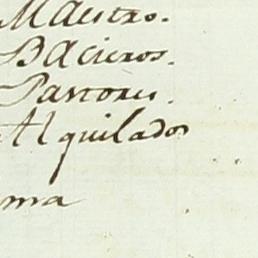 Maestro.
Bacieros.
Pastores.
Alquilados
ma